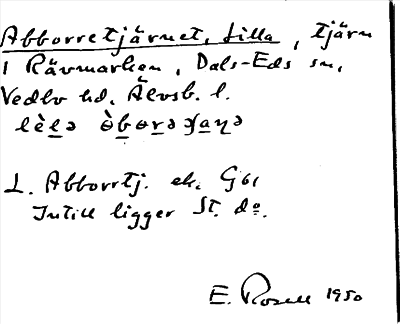 Abborretjärnet, Lilla, tjärn
i Rävmarken, Dals-Eds sn,
Vedbo hd, Älvsb. l.
lèlə òbərəʃaɳə
L. Abborrtj. ek. G61
Intill ligger St. do.
E. Rosell 1950